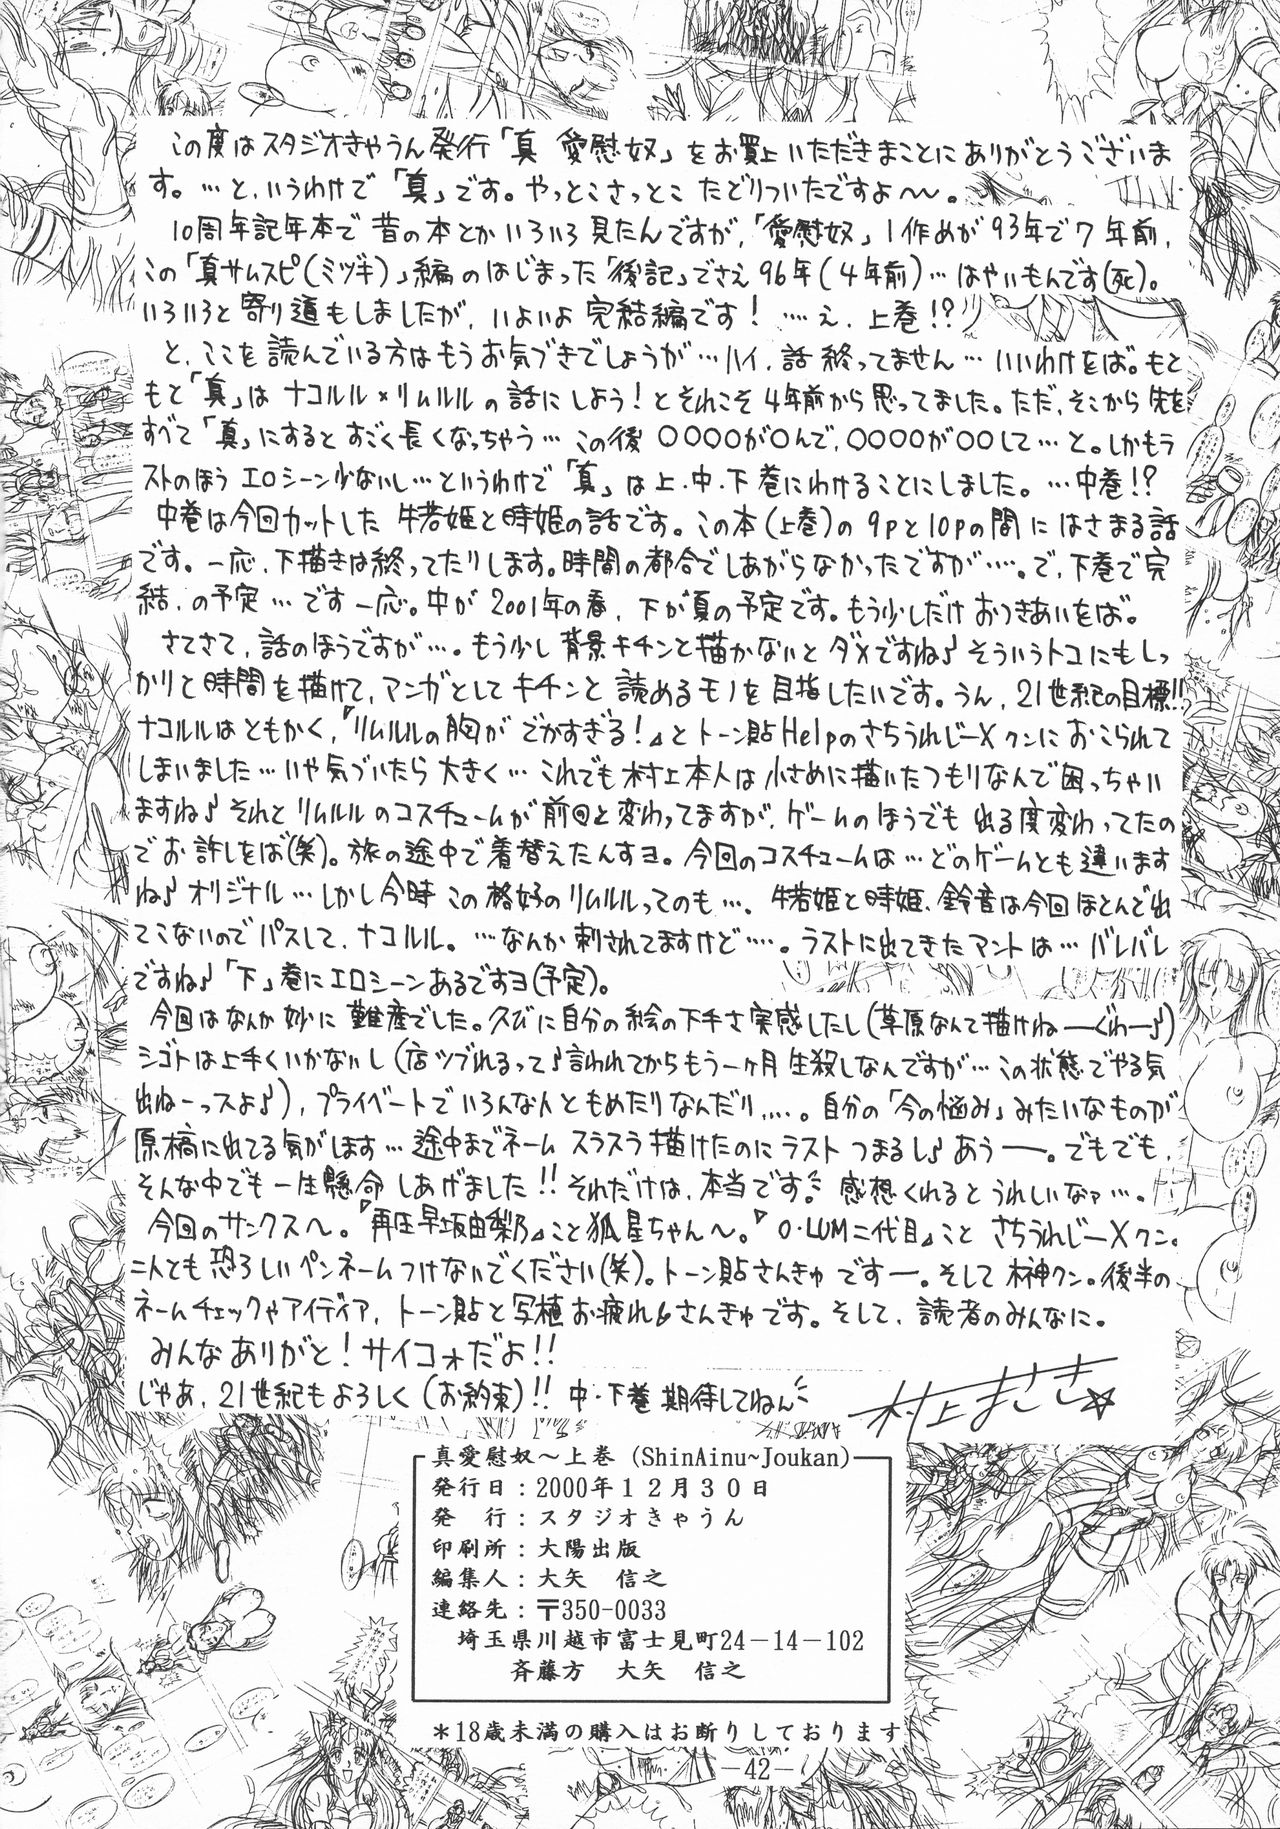 この度はスタジオきゃうん発行「真 愛慰奴」をお買上いただきまことにありがとうございま
す。…と、いうわけで「真」です。やっとこさっとこ たどりついたですよ～～。
10周年記年本で昔の本とかいろいろ見たんですが、「愛慰奴」1作めが93年で7年前、
この「真サムスピ(ミヅキ)」編のはじまった「後記」でさえ96年(4年前)…はやいもんです(死)。
いろいろと寄り道もしましたが、いよいよ完結編です! …え、上巻!?
と、ここを読んでいる方はもうお気づきでしょうが…ハイ、話終ってません…いいわけをば。もと
もと「真」はナコルル×リムルルの話にしよう!とそれこそ4年前から思ってました。ただ、そこから先を
すべて「真」にするとすごく長くなっちゃう…この後〇〇〇〇が〇んで、〇〇〇〇が〇〇して…と。しかもラ
ストのほうエロシーン少ないし…というわけで「真」は上・中・下巻にわけることにしました。…中巻!?
中巻は今回カットした牛若姫と時姫の話です。この本(上巻)の9pと10pの間にはさまる話
です。一応、下描きは終ってたりします。時間の都合でしあがらなかったですが…。で、下巻で完
結、の予定…です一応。中が2001年の春、下が夏の予定です。もう少しだけおつきあいをば。
さてさて、話のほうですが…。もう少し背景キチンと描かないとダメですね♪そういうトコにもしっ
かりと時間を描けて、マンガとしてキチンと読めるモノを目指したいです。うん、21世紀の目標!!
ナコルルはともかく、『リムルルの胸がでかすぎる!』とトーン貼HelpのさちうれじーXクンにおこられて
しまいました…いや気づいたら大きく…これでも村上本人は小さめに描いたつもりなんで困っちゃい
ますね♪それとリムルルのコスチュームが前回と変わってますが、ゲームのほうでも出る度変わってたの
でお許しをば(笑)。旅の途中で着替えたんすヨ。今回のコスチュームは…どのゲームとも違います
ね♪オリジナル…しかし今時この格好のリムルルってのも…。牛若姫と時姫、鈴音は今回ほとんで出
てこないのでパスして、ナコルル。…なんか刺されてますけど…。ラストに出てきたマントは…バレバレ
ですね♪「下」巻にエロシーンあるですヨ(予定)。
今回はなんか妙に難産でした。久びに自分の絵の下手さ実感したし(草原なんて描けねーぐわー♪)
シゴトは上手くいかないし(店ツブれるって♪言われてからもう一ヶ月生殺しなんですが…この状態でやる気
出ねーっスよ♪)、プライベートでいろんな人ともめたりなんだり…。自分の「今の悩み」みたいなものが
原稿に出てる気がします…途中までネームスラスラ描けたのにラストつまるし♪あうー。でもでも、
そんな中でも一生懸命しあげました!!それだけは、本当です。感想くれるとうれしいなァ…。
今回のサンクスへ。『再圧早坂由梨乃』こと狐星ちゃんへ。『O・LUM二代目』ことさちうれじーXクン。
二人とも恐ろしいペンネームつけないでください(笑)。トーン貼さんきゅですー。そして榊クン。後半の
ネームチェックやアイディア、トーン貼と写植お疲れ&さんきゅです。そして、読者のみんなに。
みんなありがと!サイコォだよ!!
じゃあ、21世紀もよろしく(お約束)!! 中・下巻期待してねん
村上まさき☆
真愛慰奴～上巻 (ShinAinu~Joukan)
発行日：2000年12月30日
発　行：スタジオきゃうん
印刷所：大陽出版
編集人：大矢　信之
連絡先：〒350-0033
埼玉県川越市富士見町24－14－102
斉藤方　大矢　信之
＊18歳未満の購入はお断りしております
－42－